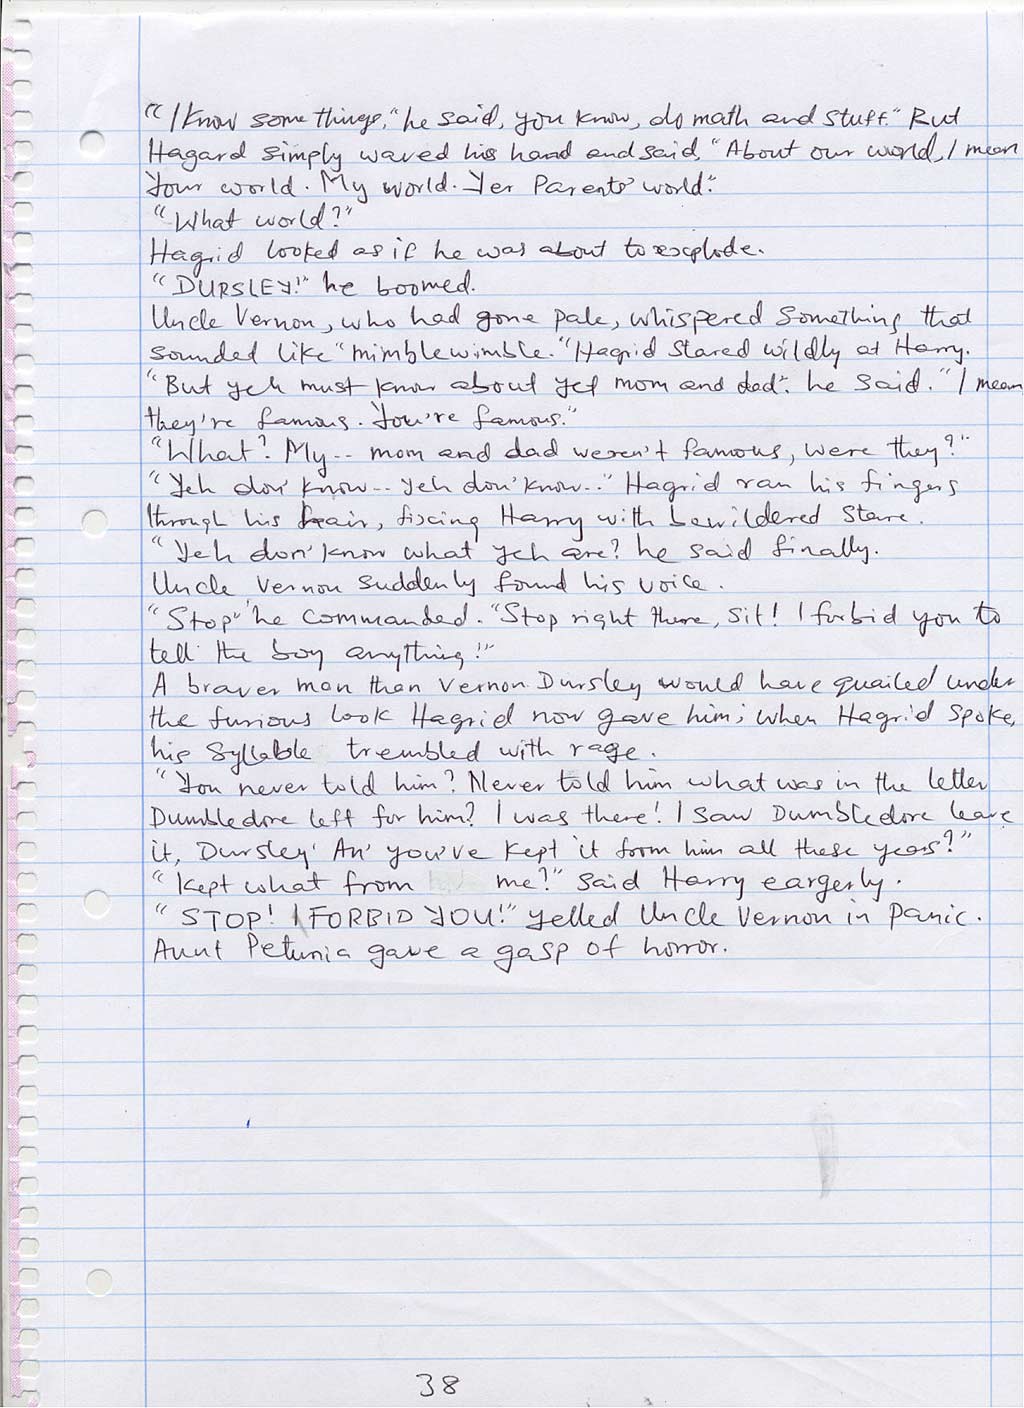 "I know some things," he said, you know, do math and stuff." But
Hagard simply waved his hand and said, "About our world, I mean
Your world. My world. Yer Parents' world."
"What world?"
Hagrid looked as if he was about to explode.
"DURSLEY!" he boomed.
Uncle Vernon, who had gone pale, whispered something that
sounded like "mimblewimble." Hagrid stared wildly at Harry.
"But yeh must know about yet mom and dad". he said. "I mean
they're famous. You're famous."
"What? My -- mom and dad weren't famous, were they?"
"Yeh don' know -- yeh don' know --" Hagrid ran his fingers
through his hair, fixing Harry with bewildered stare.
"Yeh don' know what yeh are? he said finally.
Uncle Vernon suddenly found his voice.
"Stop" he commanded. "Stop right there, sit! I forbid you to
tell the boy anything!"
A braver man than Vernon Dursley would have quailed under
the furious look Hagrid now gave him; when Hagrid spoke,
his syllable trembled with rage.
"You never told him? Never told him what was in the letter
Dumbledore left for him? I was there! I saw Dumbledore leave
it, Dursley! An' you've kept it form him all these years?"
"Kept what from me?" said Harry eargerly.
"STOP! I FORBID YOU!" yelled Uncle Vernon in panic.
Aunt Petunia gave a gasp of horror.
38